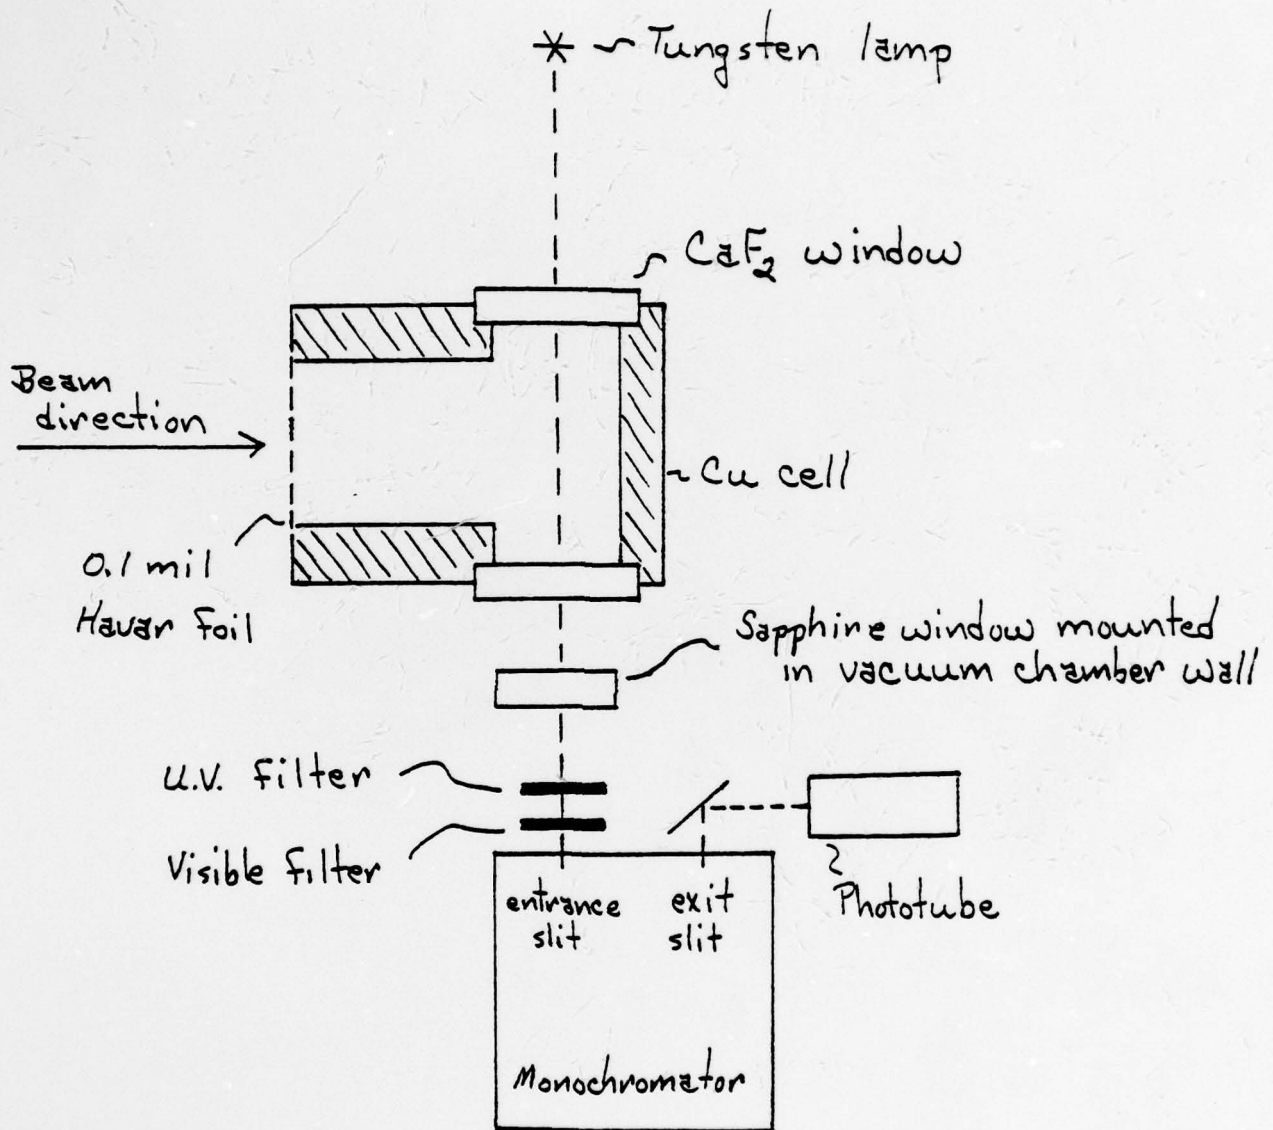 Tungsten lamp
CaF₂ window
Beam
direction
Cu cell
0.1 mil
Havar Foil
Sapphire window mounted
in vacuum chamber wall
U.V. Filter
Visible Filter
entrance
slit
exit
slit
Phototube
Monochromator